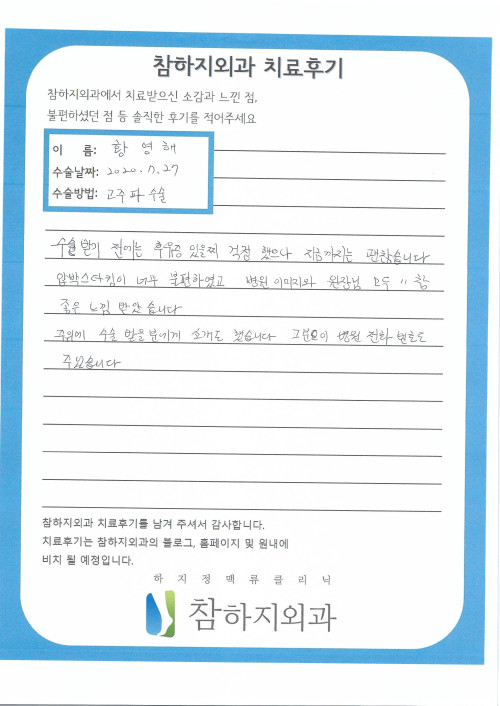 참하지외과 치료후기
참하지외과에서 치료받으신 소감과 느낀 점,
불편하셨던 점 등 솔직한 후기를 적어주세요
이 름: 황영해
수술날짜: 2020.7.27
수술방법: 고주파수술
수술받기 전에는 후유증 있을찌 걱정 했으나 지금까지는 괜찮습니다
압박스타킹이 너무 불편하였고 병원 이미지와 원장님 모두 "참
좋은 느낌 받았습니다
주위에 수술 받을분에게 소개도 했습니다 그분도이 병원 전화 번호도
주었습니다
참하지외과 치료후기를 남겨 주셔서 감사합니다.
치료후기는 참하지외과의 블로그, 홈페이지 및 원내에
비치 될 예정입니다.
하지정맥류클리닉
참하지외과